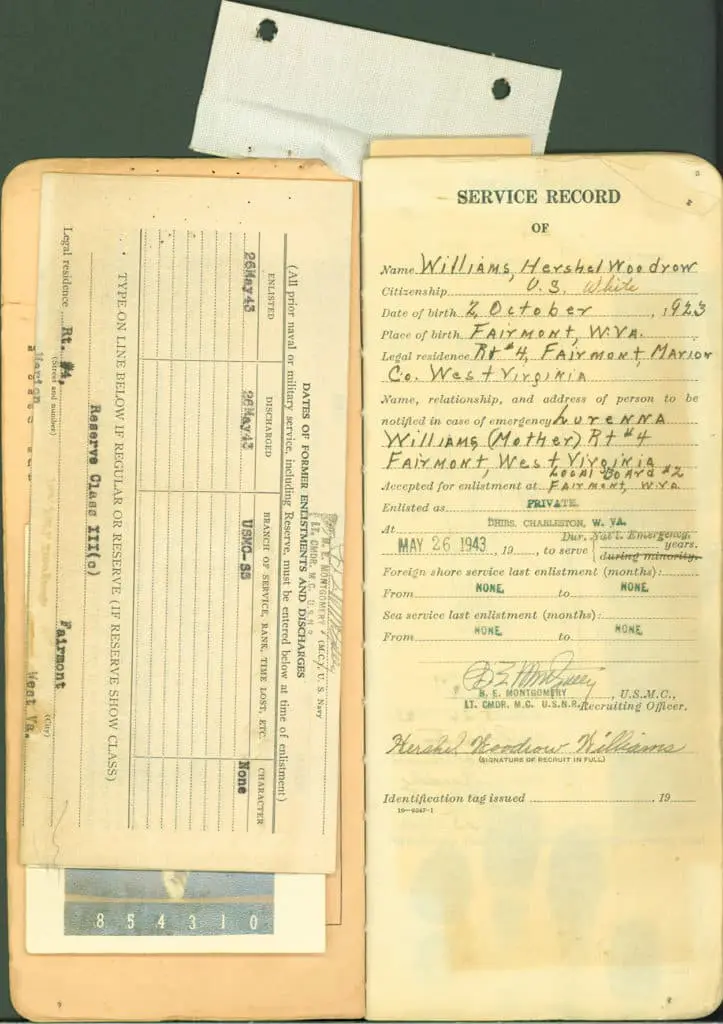 SERVICE RECORD
OF
Name Williams, Hershel Woodrow
Citizenship U.S. White
Date of birth 2 October, 1923
Place of birth Fairmont, W.Va.
Legal residence Rt #4, Fairmont, Marion
Co. West Virginia
Name, relationship, and address of person to be
notified in case of emergency Lurenna
Williams (Mother) Rt #4
Fairmont, West Virginia
Local Board #2
Accepted for enlistment at Fairmont, W.Va.
Enlisted as PRIVATE.
At DHRS. CHARLESTON, W. VA.
Dur. Nat'l. Emergency.
MAY 26 1943, 19, to serve years.
during minority.
Foreign shore service last enlistment (months):
From NONE. to NONE.
Sea service last enlistment (months):
From NONE. to NONE.
H. E. MONTGOMERY, U.S.M.C.,
LT. CMDR. M.C. U.S.N.R. Recruiting Officer.
Hershel Woodrow Williams
(SIGNATURE OF RECRUIT IN FULL)
Identification tag issued , 19
(M.C.), U. S. Navy
H. E. MONTGOMERY
LT. CMDR. M.C. U.S.N.R.
DATES OF FORMER ENLISTMENTS AND DISCHARGES
(All prior naval or military service, including Reserve, must be entered below at time of enlistment)
ENLISTED DISCHARGED BRANCH OF SERVICE, RANK, TIME LOST, ETC. CHARACTER
26May43 26May43 USMC-SS None
TYPE ON LINE BELOW IF REGULAR OR RESERVE (IF RESERVE SHOW CLASS)
Reserve Class III(c)
Legal residence Rt. #4, Fairmont
(Street and number) (City)
Marion West Va.
854310